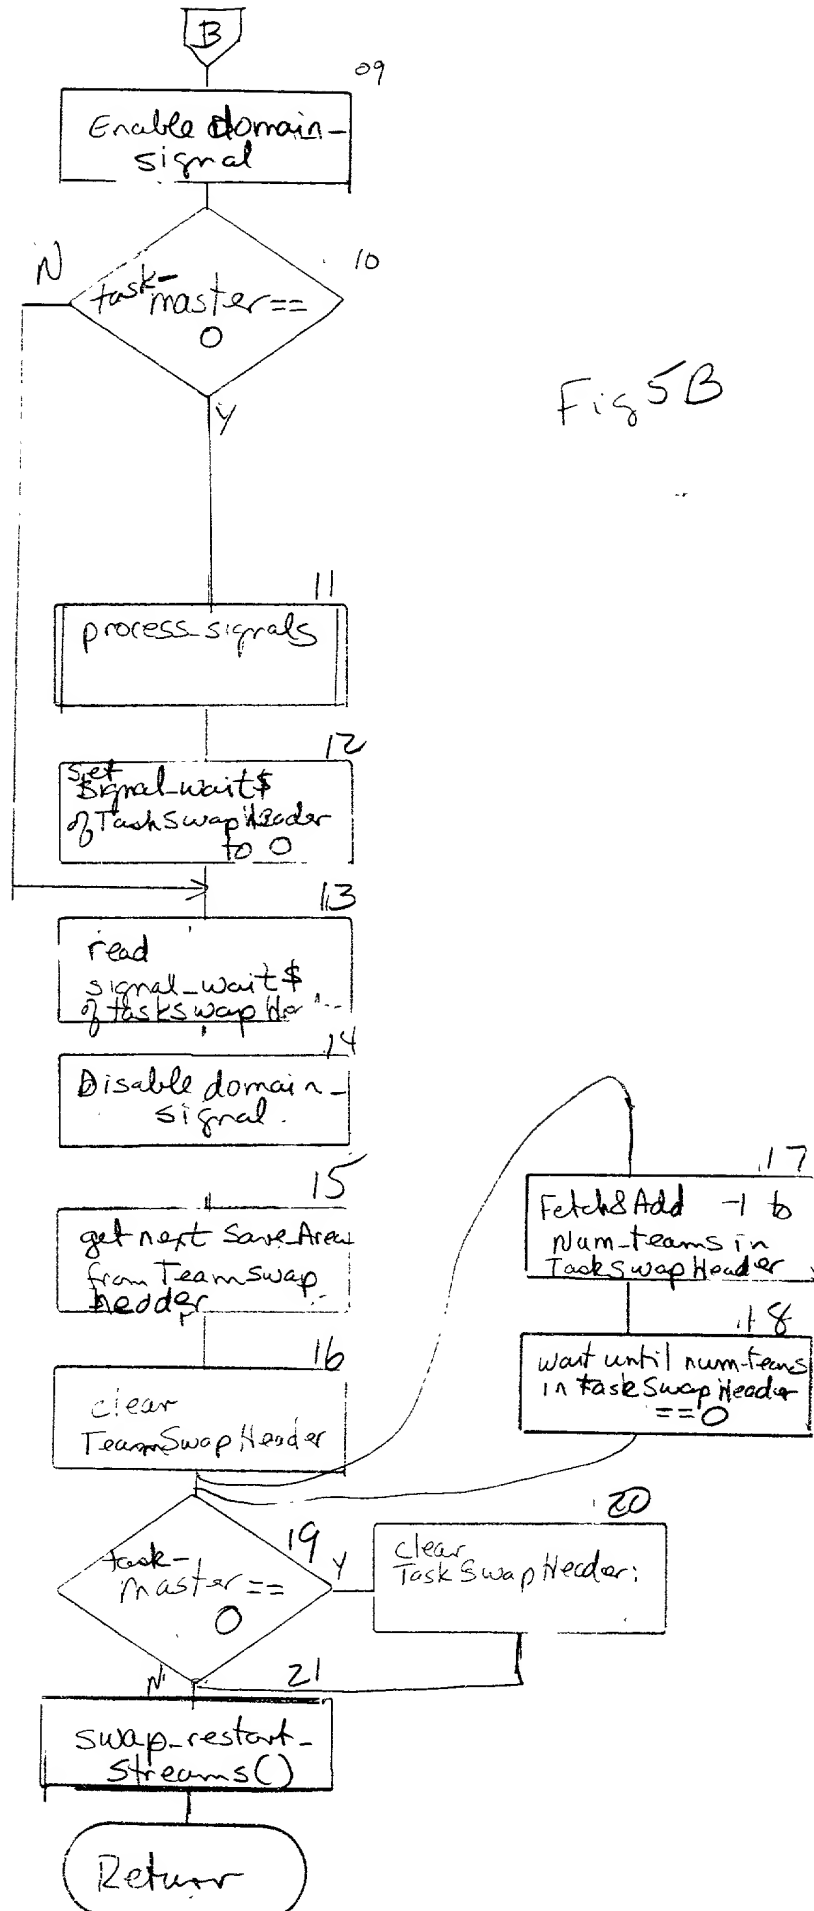 B
09
Enable domain-
signal
10
N
task-
master==
0
Y
Fig 5B
11
process_signals
12
set
signal_wait$
of TaskSwapHeader
to 0
13
read
signal_wait$
of taskSwapHe
14
Disable domain-
signal.
15
get next Save_Area
from TeamSwap
header
16
clear
TeamSwapHeader
17
Fetch&Add -1 to
Num_teams in
TaskSwapHeader
18
wait until num-teams
in taskSwapHeader
==0
19
task-
master==
0
Y
20
clear
TaskSwapHeader;
N
21
swap_restart_
streams()
Return